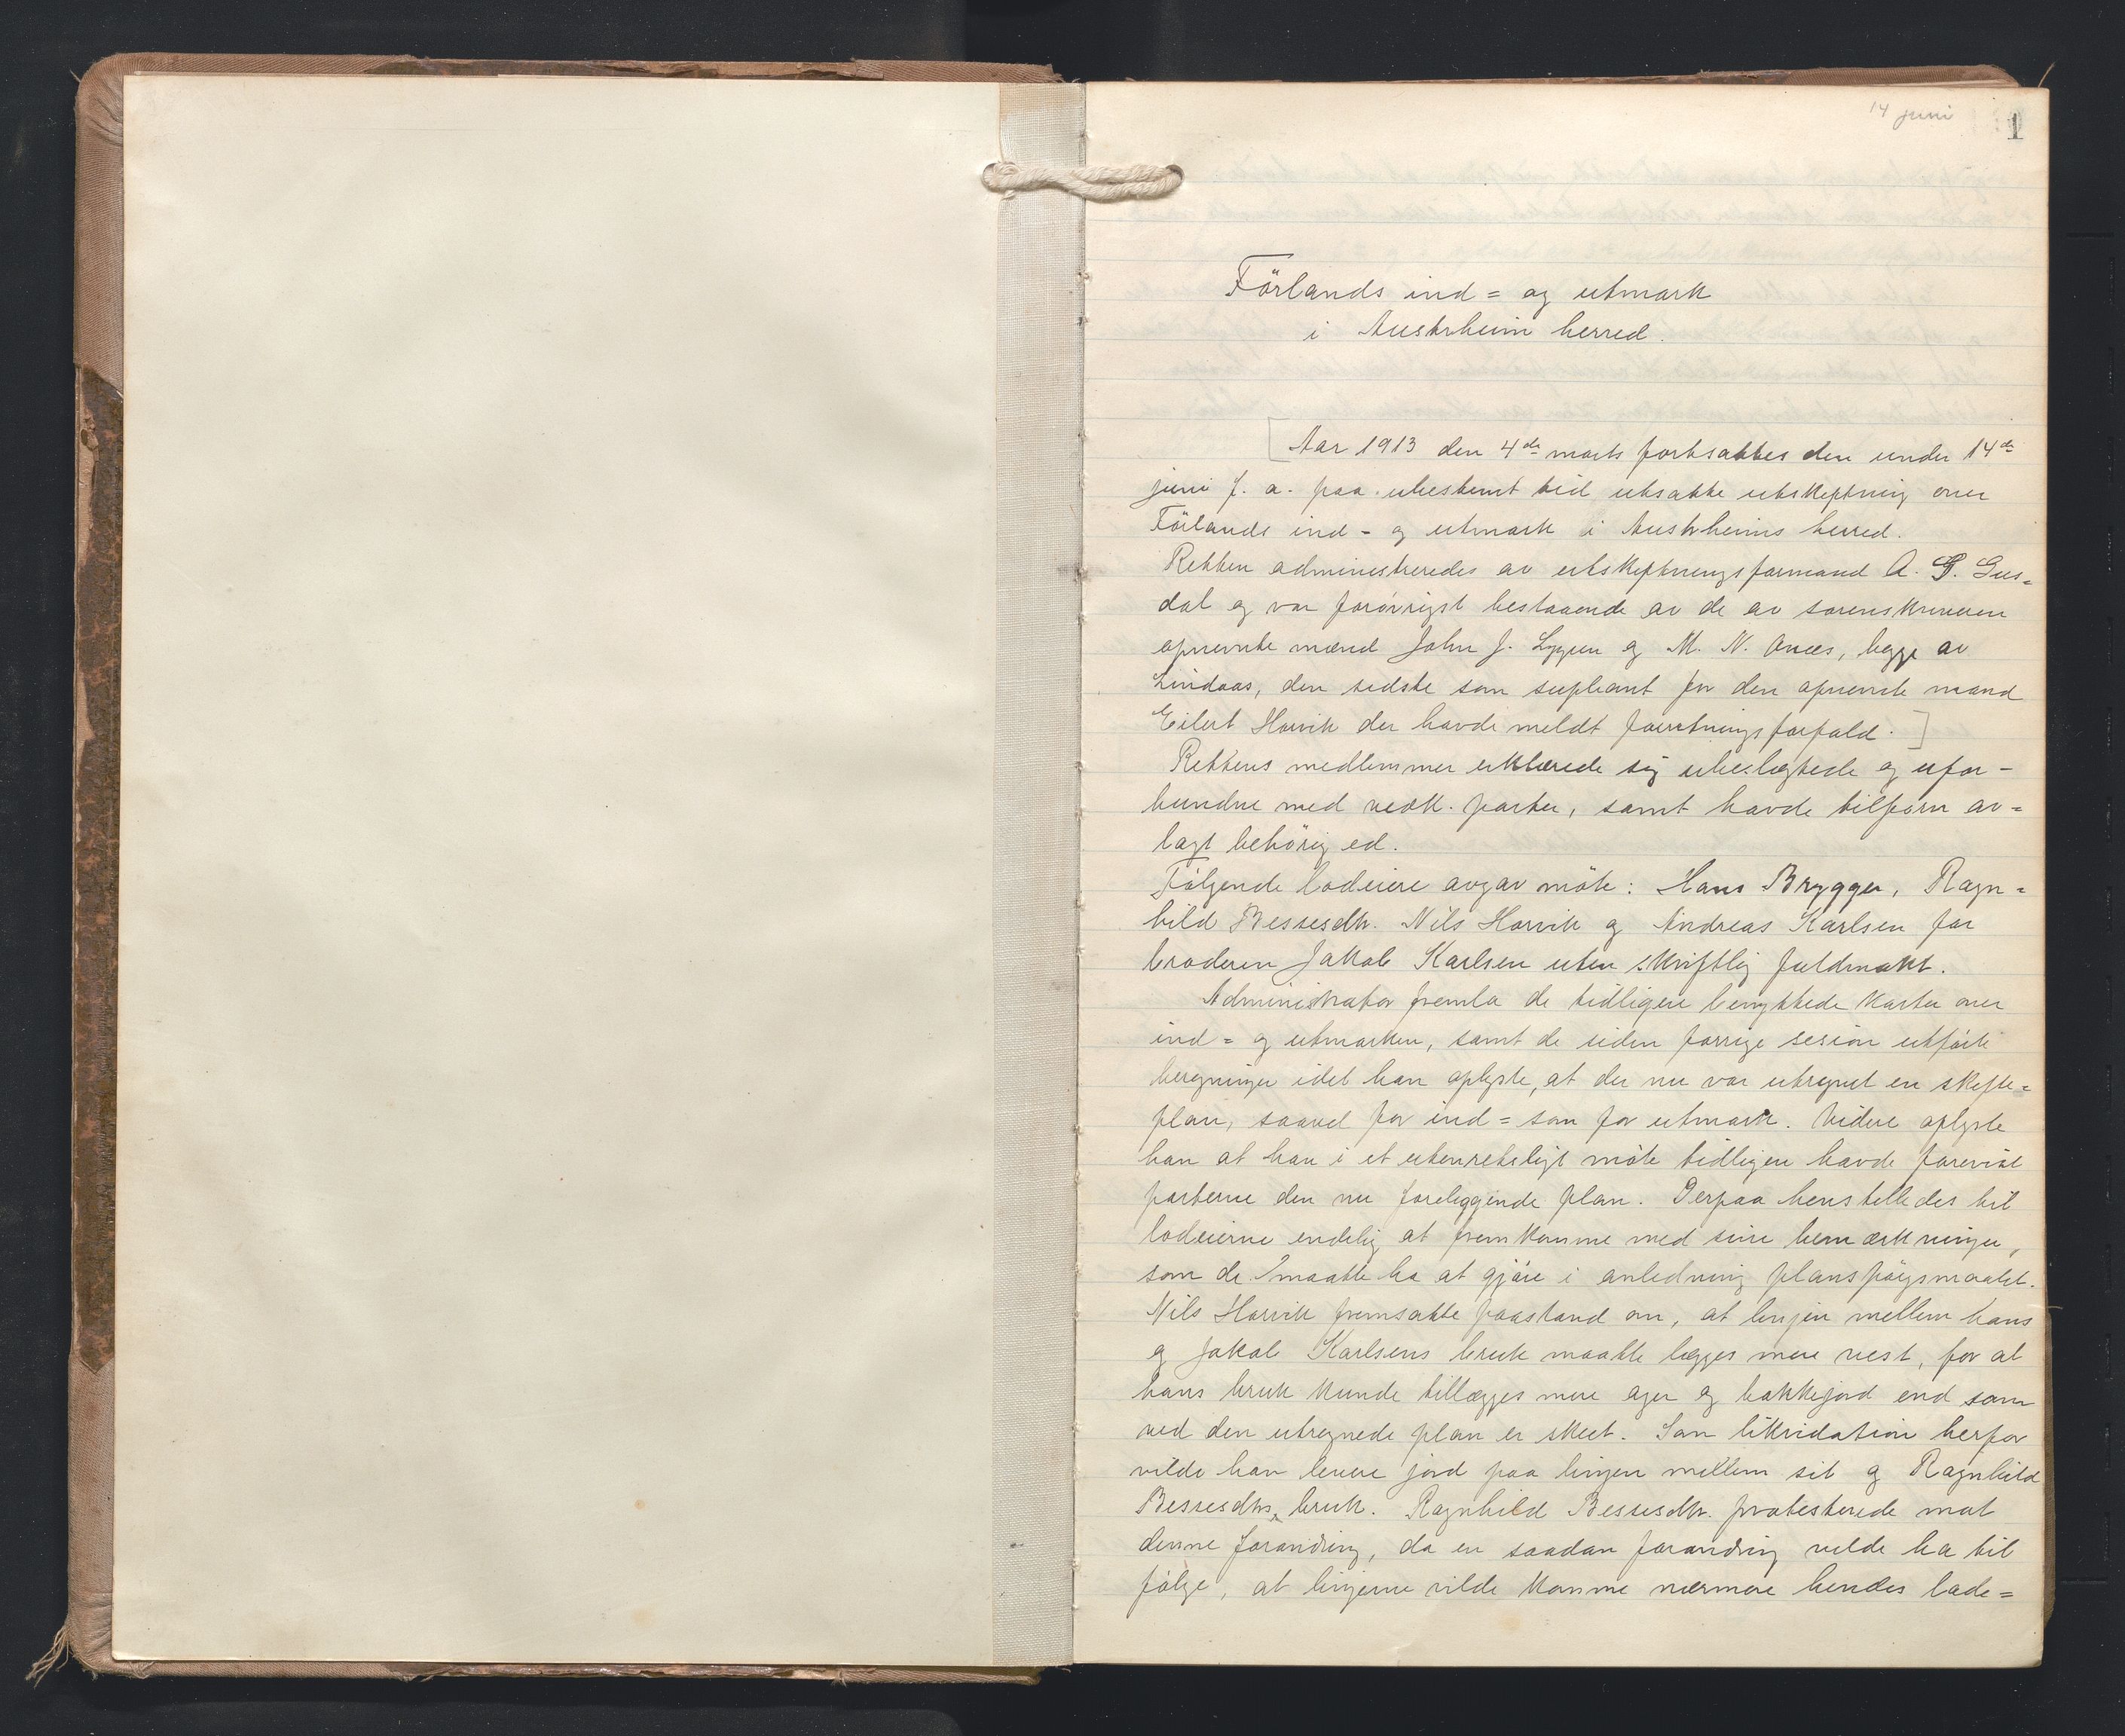 14 juni
1
Förlands ind= og utmark
i Austrheim herred.
Aar 1913 den 4de marts fortsattes den under 14de
juni f. a. paa ubestemt tid utsatte utskiftning over
Förlands ind- og utmark i Austrheims herred.
Retten administreredes av utskiftningsformand A. G. Gus=
dal og var forövrigt bestaaende av de av sorenskriveren
opnevnte mænd John J. Lygren og M. N. Anæs, begge av
Lindaas, den sidste som supleant for den opnevnte mand
Eilert Horvik der havde meldt forretningsforfald.
Rettens medlemmer erklærede sig ubeslægtede og ufor-
bundne med vedk. parter, samt havde tilforn av=
lagt behörig ed.
Fölgende lodeiere avgav möte: Hans Brygger, Ragn=
hild Bessesdtr. Nils Horvik og Andreas Karlsen for
broderen Jakob Karlsen uten skriftlig fuldmakt.
Administrator fremla de tidligere benyttede karter over
ind= og utmarken, samt de siden forrige sesion utförte
beregninger idet han oplyste, at der nu var utregnet en skifte=
plan, saavel for ind= som for utmark. Videre oplyste
han at han i et utenretsligt möte tidligere havde forevist
parterne den nu foreliggende plan. Derpaa henstilledes til
lodeierne endelig at fremkomme med sine bemærkninger,
som de maatte ha at gjöre i anledning planspörgsmaalet.
Nils Horvik fremsatte paastand om, at linjen mellem hans
og Jakob Karlsens bruk maatte lægges mere vest, for at
hans bruk kunde tillægges mere ager og bakkejord end som
ved den utregnede plan er skeet. Som likvidation herfor
vilde han levere jord paa linjen mellem sit og Ragnhild
Bessesdtrs bruk. Ragnhild Bessesdtr. protesterede mot
denne forandring, da en saadan forandring vilde ha til
fölge, at linjerne vilde komme nærmere hendes lade=